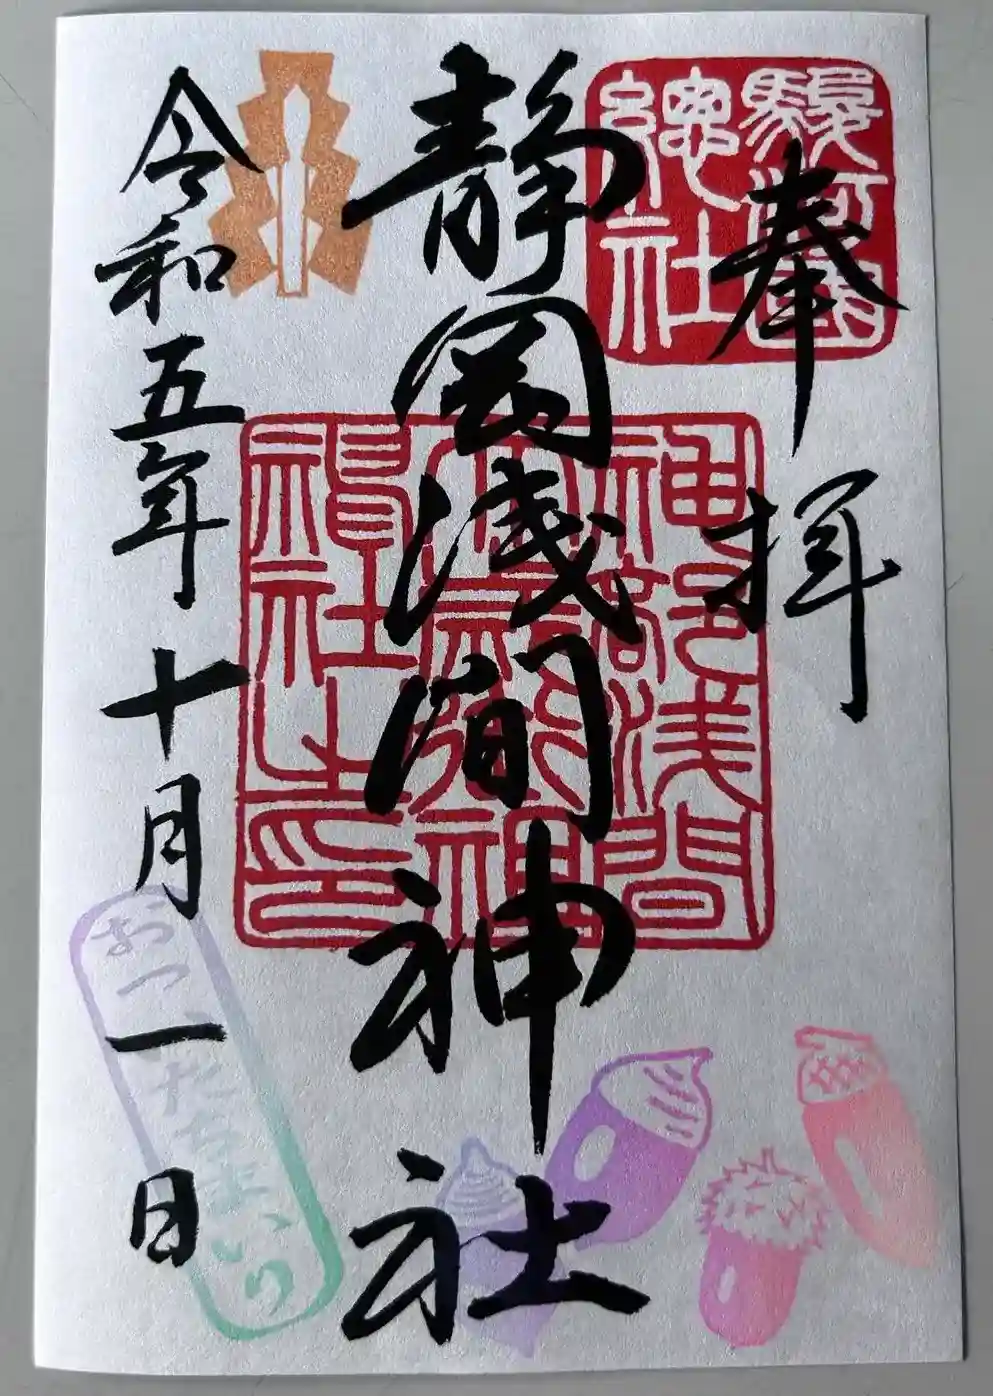 奉拝
駿河國
總社
静岡浅間神社
令和五年十月一日
おついたちまいり